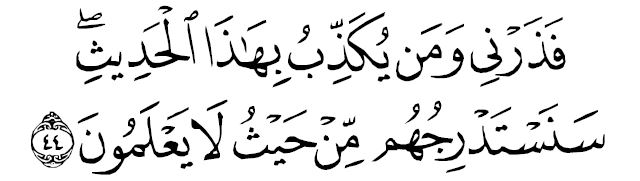 فَذَرْنِي وَمَن يُكَذِّبُ بِهَٰذَا ٱلْحَدِيثِ ۖ
سَنَسْتَدْرِجُهُم مِّنْ حَيْثُ لَا يَعْلَمُونَ ٤٤